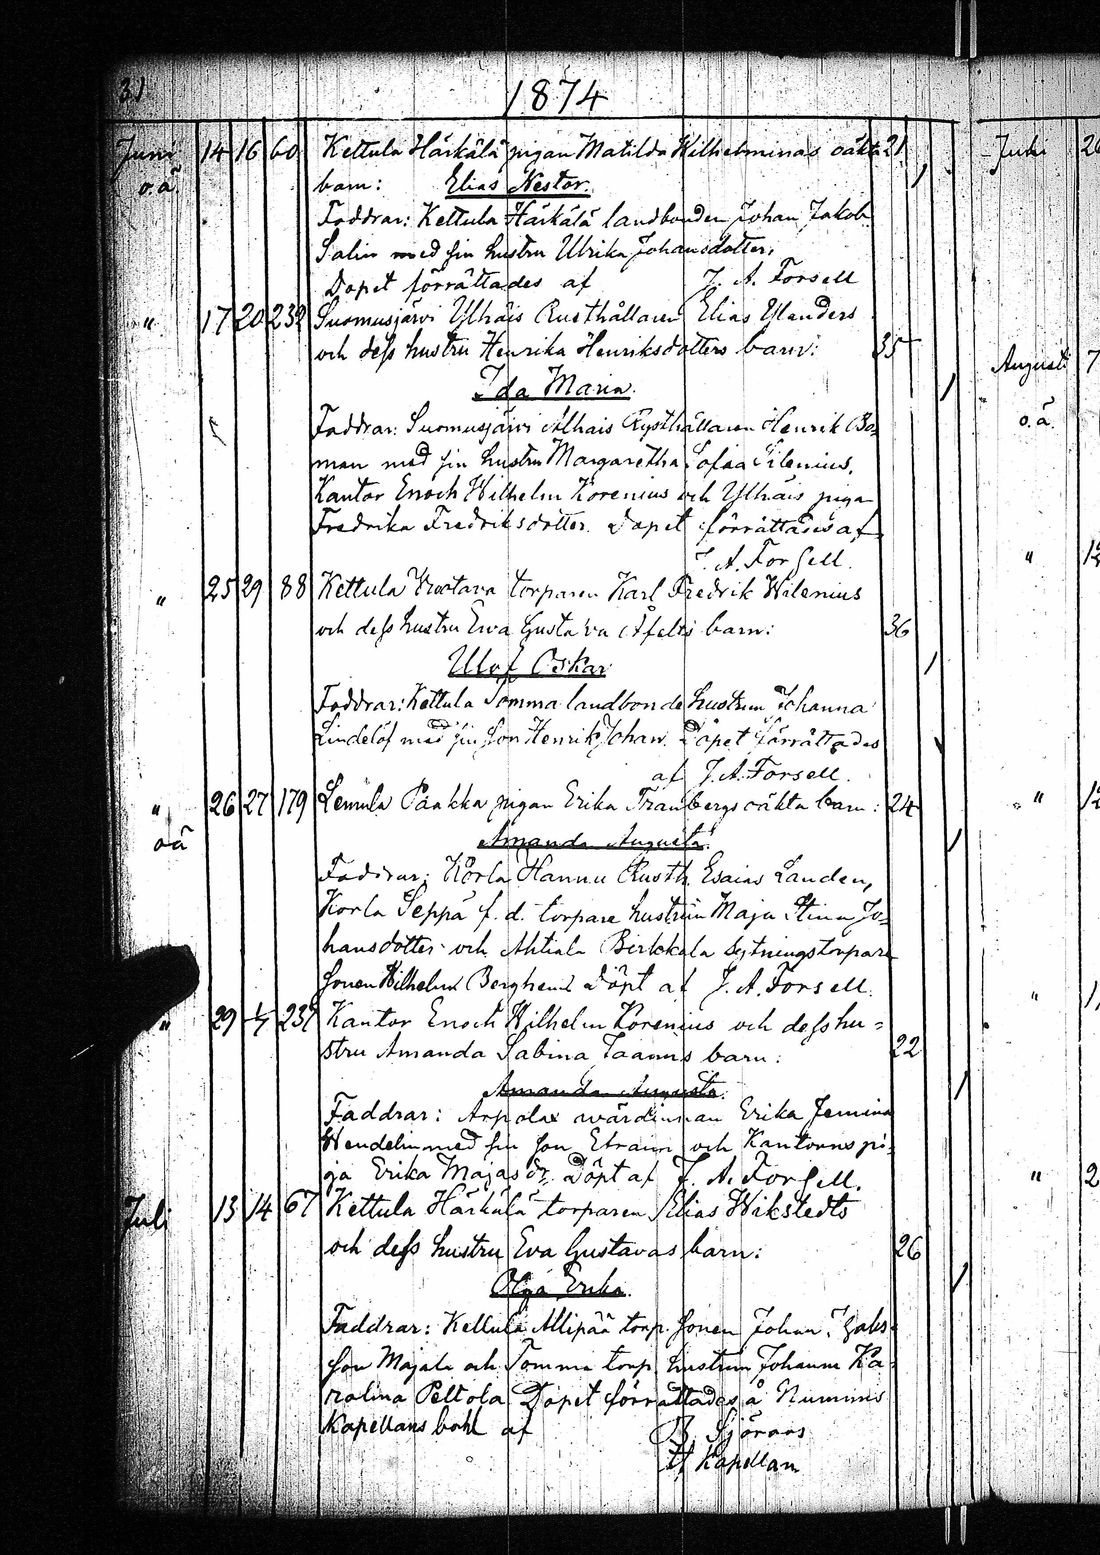 31
1874
Juni 14 16 60 Kettula Härkälä pigan Matilda Wilhelminas oäkta 21
o.ä. barn: Elias Nestor.
Faddrar: Kettula Härkälä landbonden Johan Jakob
Salin med sin hustru Ulrika Johansdotter.
Dopet förrättades af J. A. Forsell
" 17 20 232 Suomusjärvi Ylhäis Rusthållaren Elias Ylanders
och dess hustru Henrika Henriksdotters barn: 35
Ida Maria.
Faddrar: Suomusjärvi Alhais Rysthållaren Henrik Bo=
man med sin hustru Margaretha Sofia Silenius,
Kantor Enoch Wilhelm Korenius och Ylhäis piga
Fredrika Fredriksdotter. Dopet förrättades af
J. A. Forsell.
" 25 29 88 Kettula torparen Karl Fredrik Wilenius
och dess hustru Ewa Gustava Åfelts barn: 36
Ulof Oskar
Faddrar: Kettula Tomma landbonde hustrun Johanna
Lindelöf med sin son Henrik Johan. Dopet förrättades
af J. A. Forsell.
" 26 27 179 Lemula Paakka pigan Erika Tranbergs oäkta barn: 24
oä
Amanda Augusta.
Faddrar: Korla Hannu Rusth. Esaias Landen,
Korla Seppä f. d. torpare hustrun Maja Stina Jo=
hansdotter och Ahtiala Birkkala sytningstorpare
sonen Wilhelm Döpt af J. A. Forsell.
" 29 237 Kantor Enoch Wilhelm Korenius och dess hu=
stru Amanda Sabina barn: 22
Amanda Augusta.
Faddrar: Arpolax wärdinnan Erika Jemina
med sin son Efraim och Kantorns pi=
ga Erika Majasdr. Döpt af J. A. Forsell.
Juli 13 14 67 Kettula Härkälä torparen Elias Wikstedts
och dess hustru Eva Gustavas barn: 26
Olga Erika.
Faddrar: Kettula Allipää torp. sonen Johan
son Majala och Tomma torp. hustrun Johanna Ka=
rolina Peltola Dopet förrättades å Nummis
Kapellans bohl af Sjöroos
Kapellan
Juli 26
Augusti 7
o.ä.
" 12
" 12
"
" 2